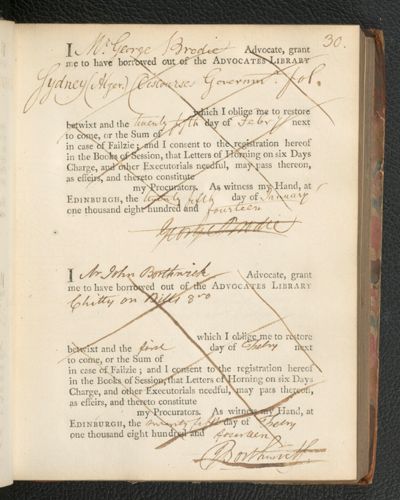 30.
I Mr George Brodie Advocate, grant
me to have borrowed out of the ADVOCATES LIBRARY
Sydney (Alger.) Discourses Governmt. fol.
which I oblige me to restore
betwixt and the twenty fifth day of Feby next
to come, or the Sum of
in case of Failzie; and I consent to the registration hereof
in the Books of Session, that Letters of Horning on six Days
Charge, and other Executorials needful, may pass thereon,
as effeirs, and thereto constitute
my Procurators. As witness my Hand, at
EDINBURGH, the twenty fifth day of January
one thousand eight hundred and fourteen
George Brodie
I Mr John Borthwick Advocate, grant
me to have borrowed out of the ADVOCATES LIBRARY
Chitty on Bills 8vo
which I oblige me to restore
betwixt and the first day of next
to come, or the Sum of
in case of Failzie; and I consent to the registration hereof
in the Books of Session, that Letters of Horning on six Days
Charge, and other Executorials needful, may pass thereon,
as effeirs, and thereto constitute
my Procurators. As witness my Hand, at
EDINBURGH, the day of
one thousand eight hundred and fourteen
Borthwick